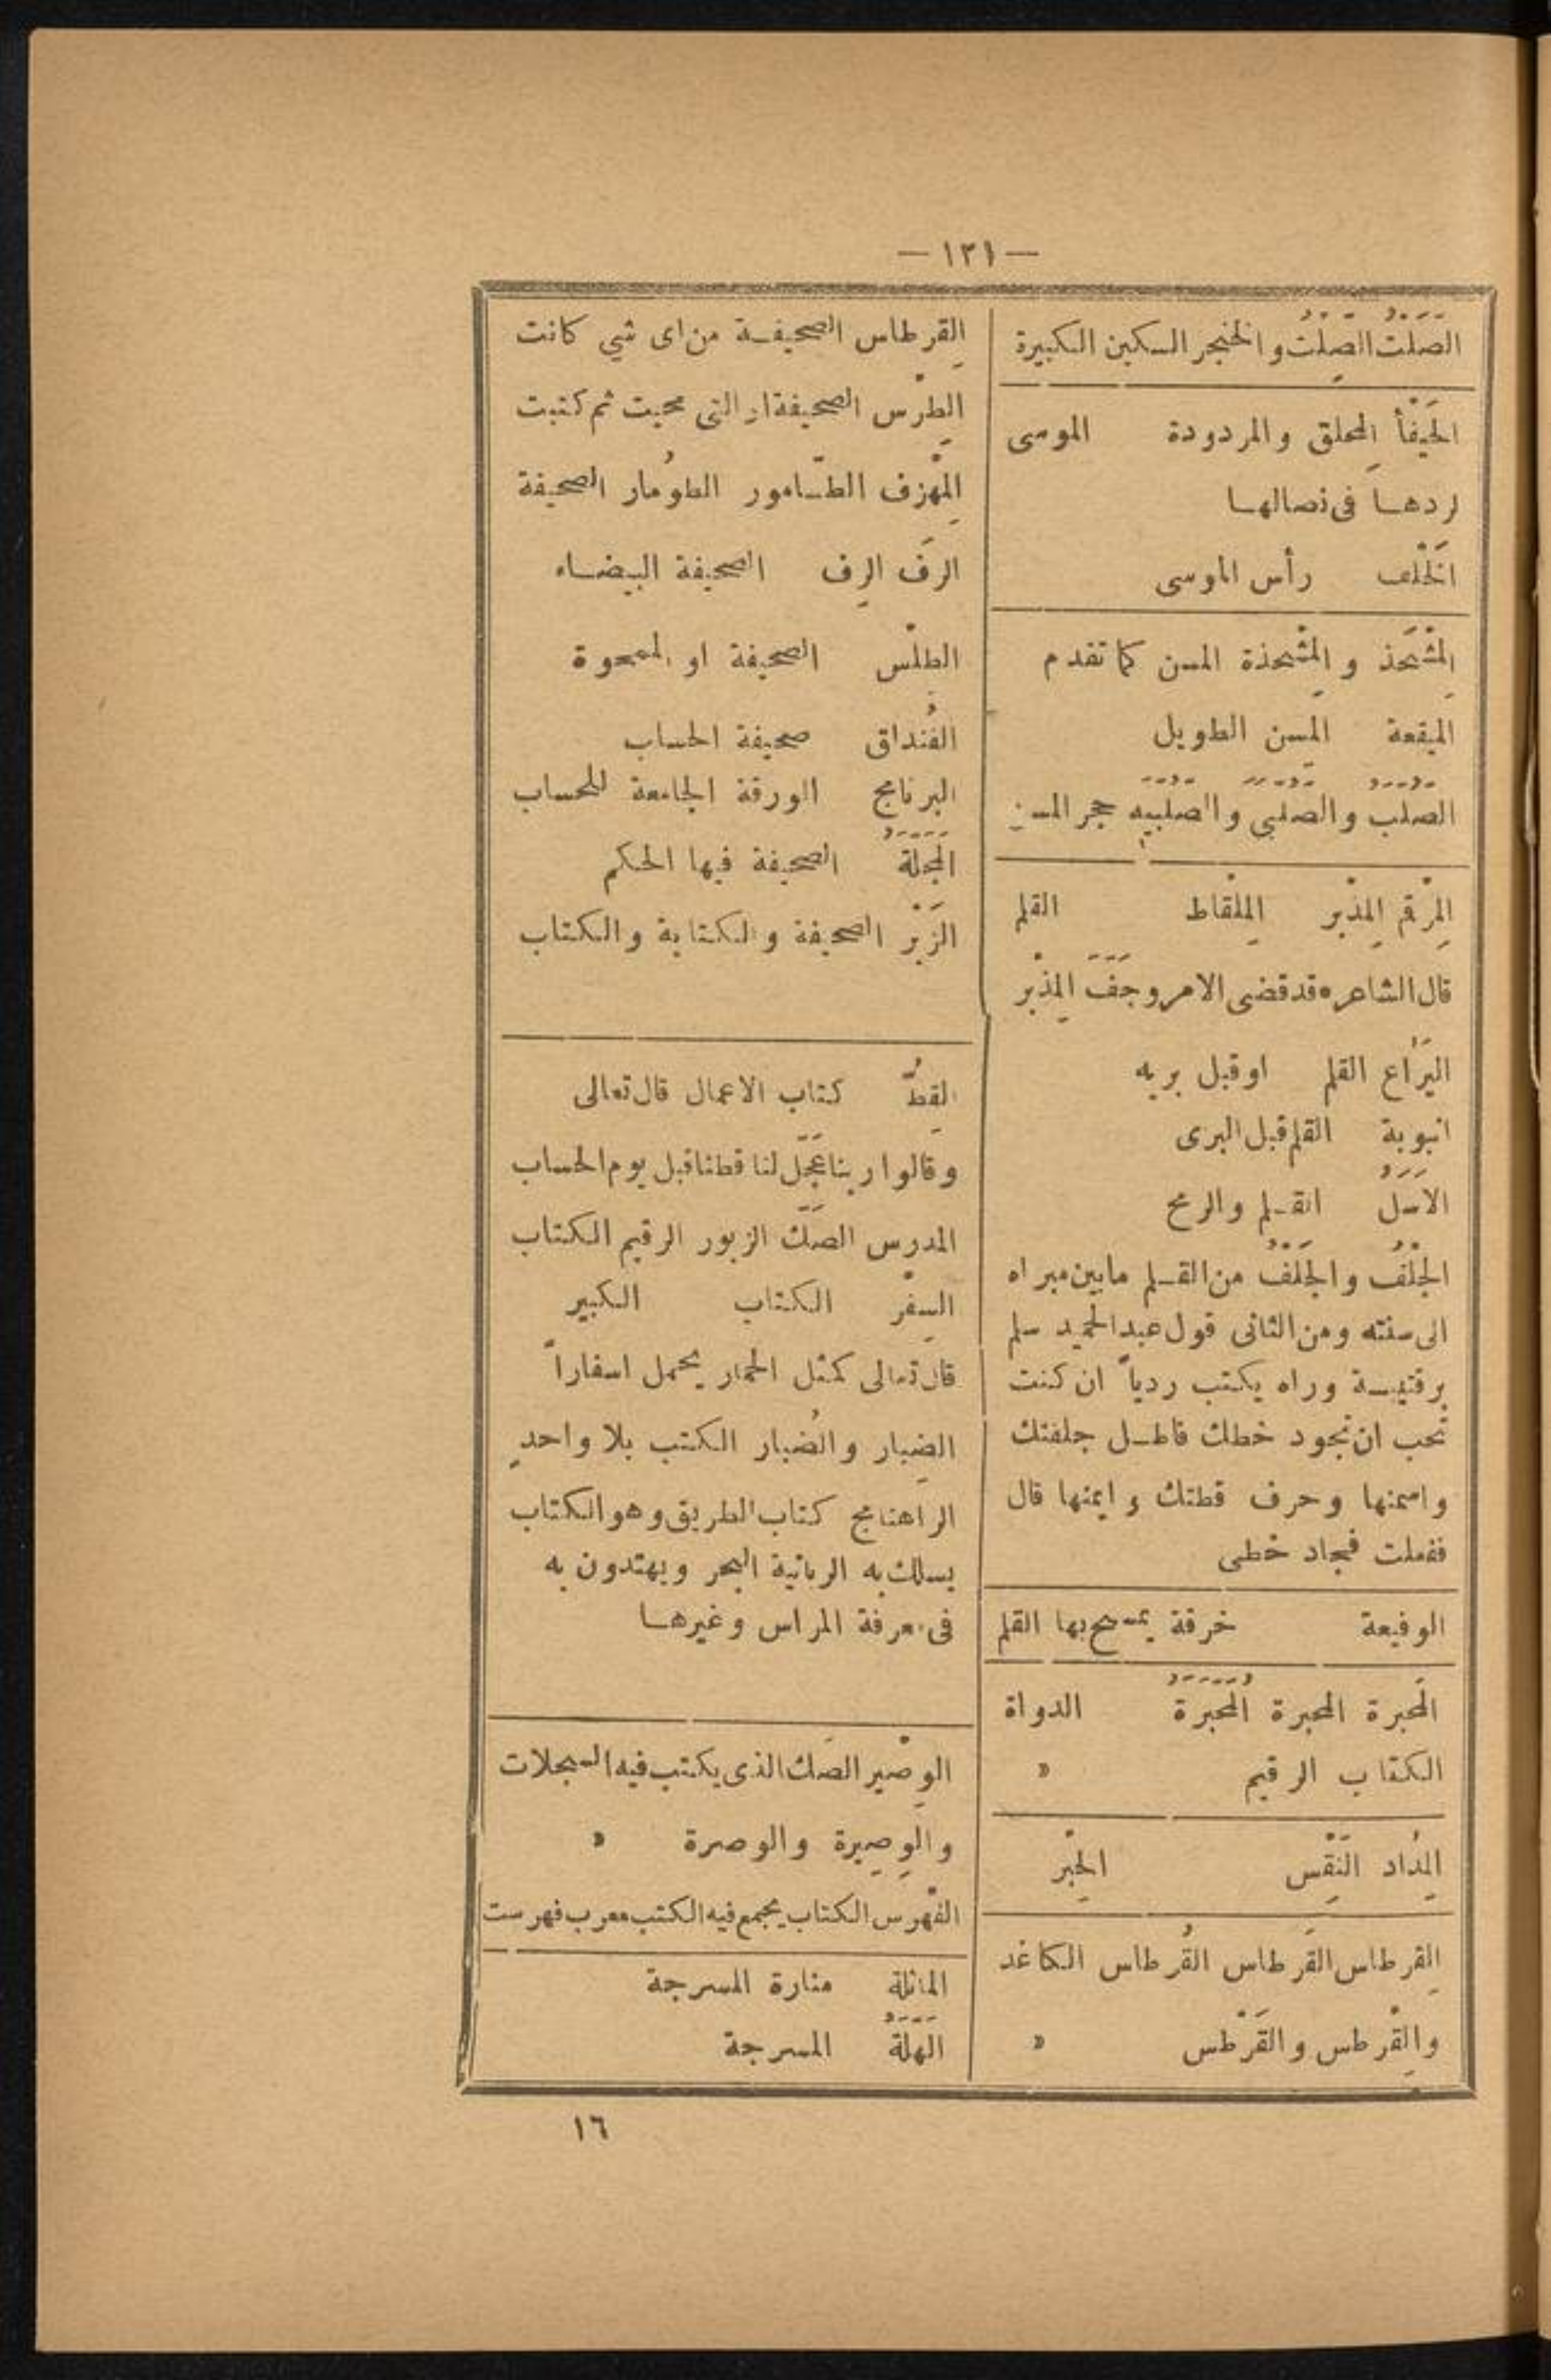 — ١٢١ —
الصَلتُ الصِلتُ والخنجر السكين الكبيرة
الحَيفأ المحلق والمردودة الموسى
لردها فى نصالها
الخَلف رأس الموسى
المِشْحَذ و المِشْحذة المسن كما تقدم
الميقعة المِسن الطويل
الصلب والصلبى والصلبيه حجر المسن
المِرْقم المِذْبر المِلْقاط القلم
قال الشاعر ٥ قد قضى الامر وجَفَّ المِذْبر
اليَرَاع القلم او قبل بريه
انبوبة القلم قبل البرى
الاَسَلُ القلم والرمح
الجلْفُ والجَلْفُ من القلم مابين مبراه
الى سنته ومن الثانى قول عبد الحميد سلم
بر قتيبة وراه يكتب ردياً ان كنت
تحب ان تجود خطك فاطل جلفتك
واسمنها وحرف قطتك وايمنها قال
ففعلت فجاد خطى
الوفيعة خرقة يمسح بها القلم
المَحبرة المحبرة المَحَبرَةُ الدواة
الكتاب الرقيم »
المِدُاد النَقْس الحِبْر
القِرطاس القَرطاس القُرطاس الكاغد
والقِرْطس والقَرْطس »
القِرطاس الصحيفة من اى شي كانت
الطِرْس الصحيفة او التى محيت ثم كتبت
المِهْرَق الطامور الطوُمار الصحيفة
الرَق الرِق الصحيفة البيضاء
الطِلْس الصحيفة او الممحوة
الفُنداق صحيفة الحساب
البرنامج الورقة الجامعة للحساب
المجَلَةُ الصحيفة فيها الحكم
الزَبْر الصحيفة والكتابة والكتاب
القِطُّ كتاب الاعمال قال تعالى
وقالوا ربنا عَجّل لنا قطنا قبل يوم الحساب
المدرس الصَكّ الزبور الرقيم الكتاب
السِفْر الكتاب الكبير
قال تعالى كمثل الحمار يحمل اسفاراً
الضِبار والضُبار الكتب بلا واحدٍ
الراهنامج كتاب الطريق وهو الكتاب
يسلك به الربانية البحر ويهتدون به
فى معرفة المراس وغيرها
الوِصْير الصَك الذى يكتب فيه السجلات
والوِصِيرة والوصرة »
الفِهْرَس الكتاب يجمع فيه الكتب معرب فهرست
الماثلة منارة المسرجة
الهلَةُ المسرجة
١٦